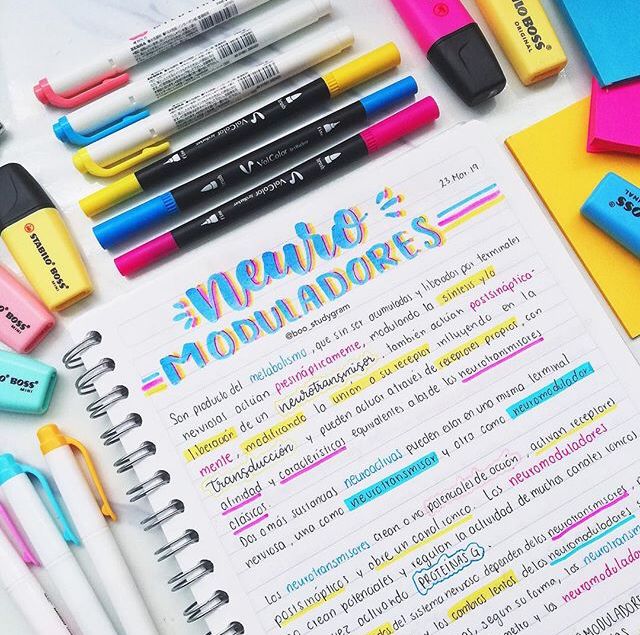 23 Mar. 19
neuro
MODULADORES
@boo_studygram
Son producto del metabolismo, que sin ser acumuladas y liberadas por terminales
nerviosas actúan presinápticamente, modulando la síntesis y/o
liberación de un neurotransmisor. También actúan postsináptica-
mente, modificando la unión a su receptor influyendo en la
transducción y pueden actuar a través de receptores propios, con
afinidad y características equivalentes a las de los neurotransmisores
clásicos.
Dos o más sustancias neuroactivas pueden estar en una misma terminal
nerviosa, una como neurotransmisor y otra como neuromodulador.
Los neurotransmisores crean o no potenciales de acción, activan receptores
postsinápticos y abre un canal iónico. Los neuromoduladores
no crean potenciales y regulan la actividad de muchos canales iónicos
vez activando PROTEINAS G.
del sistema nervioso dependen de los neurotransmisores,
los cambios lentos de los neuromoduladores.
según su forma, los neurotransm
y los neuromodula
MODULADOR
STABILO BOSS
MINI
BOSS
MINI
BOSS
MINI
STABILO BOSS
ORIGINAL
BOSS
ORIGINAL
VolColor
VolColor
VolColor
Fine
Brush